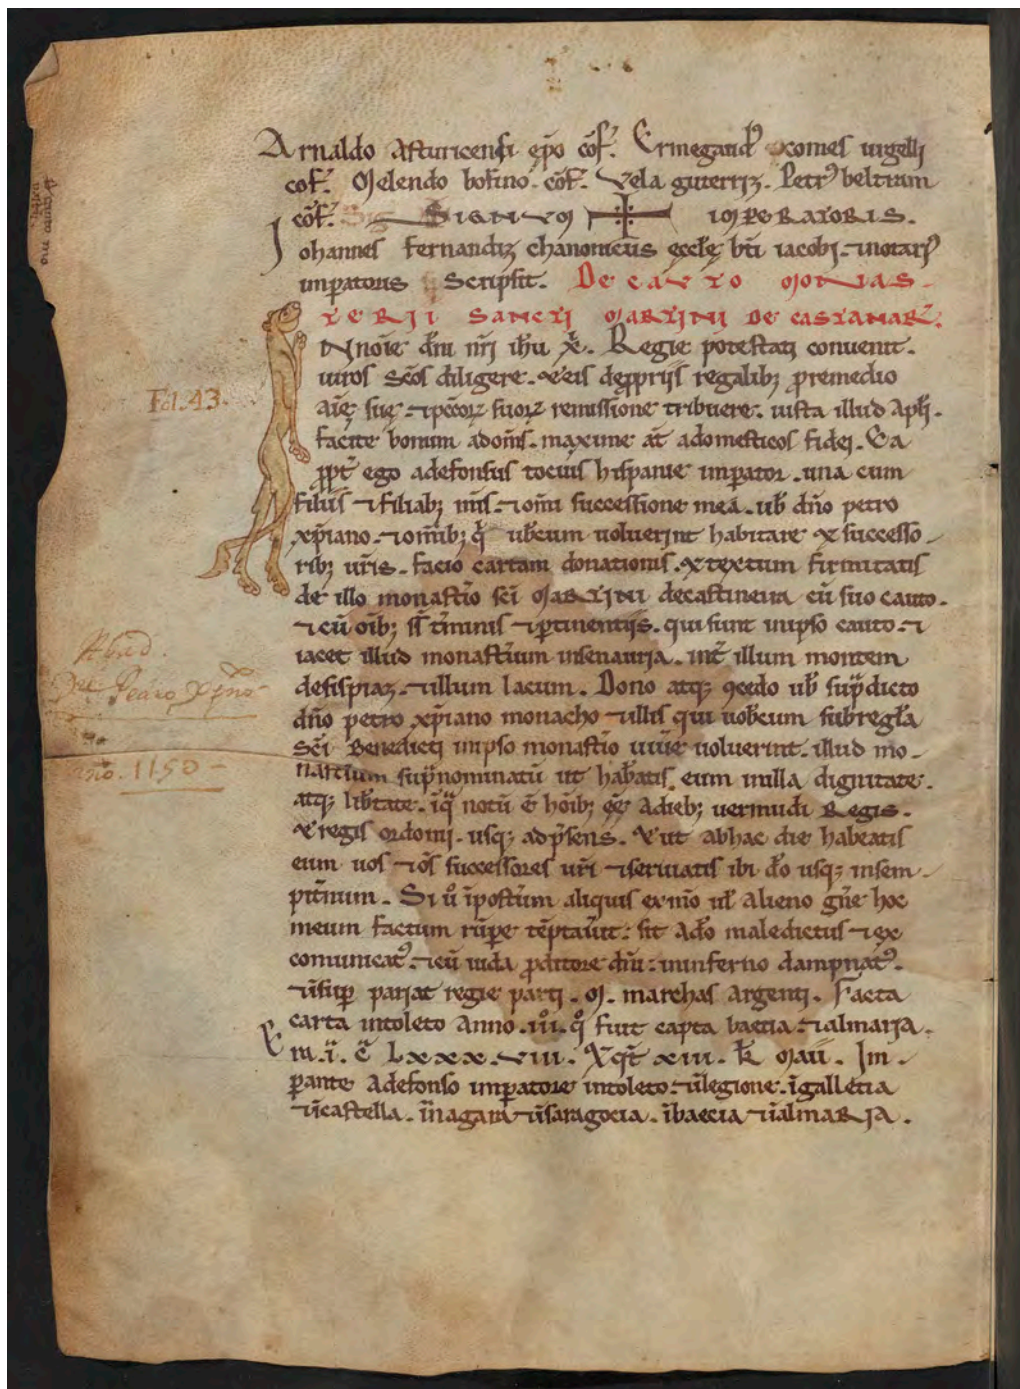 Arnaldo Asturicensi ep̃o cõf. Ermegand᾿ comes urgelli
cof̃. Melendo bofino. cõf. Vela guterriz. Petr᾿ beltram
cõf. SIGNVM IMPERATORIS.
Iohannes fernandiz chanonicus eccłę bt̃i iacobi. ⁊ notari᾿
imp̱atoris Scripsit. DE CAVTO MONAS-
TERII SANCTI MARTINI DE CASTANAR̃.
IN noĩe dñi nr̃i ihũ xp̃i. Regie potestati conuenit.
uiros sc̃os diligere. & eis de p̱prijs regalibꝫ p̱ remedio
aĩę suę. ⁊ pecc̃oꝝ suoꝝ remissione tribuere. iusta illud apłi.
facite bonum ad om̃s. maxime at̃ ad omesticos fidei. Ea
p̱pt̃ ego adefonsus tocius hispanie imp̱ator. una cum
filiis ⁊ filiabꝫ meis. ⁊ om̃i successione mea. uob̃ dño petro
xp̃iano. ⁊ om̃ibꝫ q̃ uob̃cum uoluerint habitare & successo-
ribꝫ ur̃is. facio cartam donationis. & textum firmitatis
de illo monast̃io sc̃i MARTINI de castineira cũ suo cauto.
⁊ cũ om̃ibꝫ st̃ t̃minis ⁊ p̱tinentiis. qui sunt in ipso cauto. ⁊
iacet illud monast̃ium in senauria. int̃ illum montem
de fispiaz. ⁊ illum lacum. Dono atqꝫ ꝯcedo uob̃ sup̃dicto
dño petro xp̃iano monacho ⁊ illis qui uob̃cum sub regła
Sc̃i Benedicti in ipso monast̃io uiũe uoluerint. illud mo-
nast̃ium sup̃nominatũ ut hab̃atis eum in illa dignitate.
atqꝫ lib̃tate. ĩ q̃ notũ ẽ hõibꝫ eẽ a diebꝫ uermudi Regis.
& regis ordonii. usqꝫ ad p̃sens. & ut ab hac die habeatis
eum uos ⁊ om̃s successores ur̃i ⁊ seruiatis ibi dõ usqꝫ in sem-
pit̃num. Si ů ĩ post̃um aliquis ex mõ uł alieno gñe hoc
meum factum rũp̱e tẽptaũit: sit a dõ maledictus ⁊ ex
comunicat᾿. ⁊ cũ iuda p̱ditore dñi: in inferno dampnat᾿.
⁊ insup̱ pariat regie parti. M. marchas argenti. Facta
carta in toleto Anno. iii̊. q̊ fuit capta baecia. ⁊ almarja.
Era. ĩ. c̃ Lxxx.viii. & q̊t̃ xiii. k̃ᷤ Maii. Im-
p̱ante Adefonso imp̱atore in toleto. ⁊ ĩ legione. ĩ galletia
⁊ ĩ castella. ĩ nagara ⁊ ĩ saragocia. ĩ baecia ⁊ ĩ almaRja.
Fol. 43.
Abad.
Pedro Xp̃no
año. 1150 -